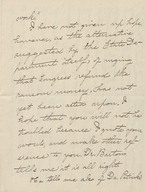 work"
I have not given up hope
however, as the alternative
suggested by the State De-
partment itself, of urging
that Congress refund the
ransom money, has not
yet been acted upon. I
hope that you will not be
troubled because I quote you
work and make other ref-
erences to you. Dr. Barton
tells me it is all right.
He tells me also if Dr.